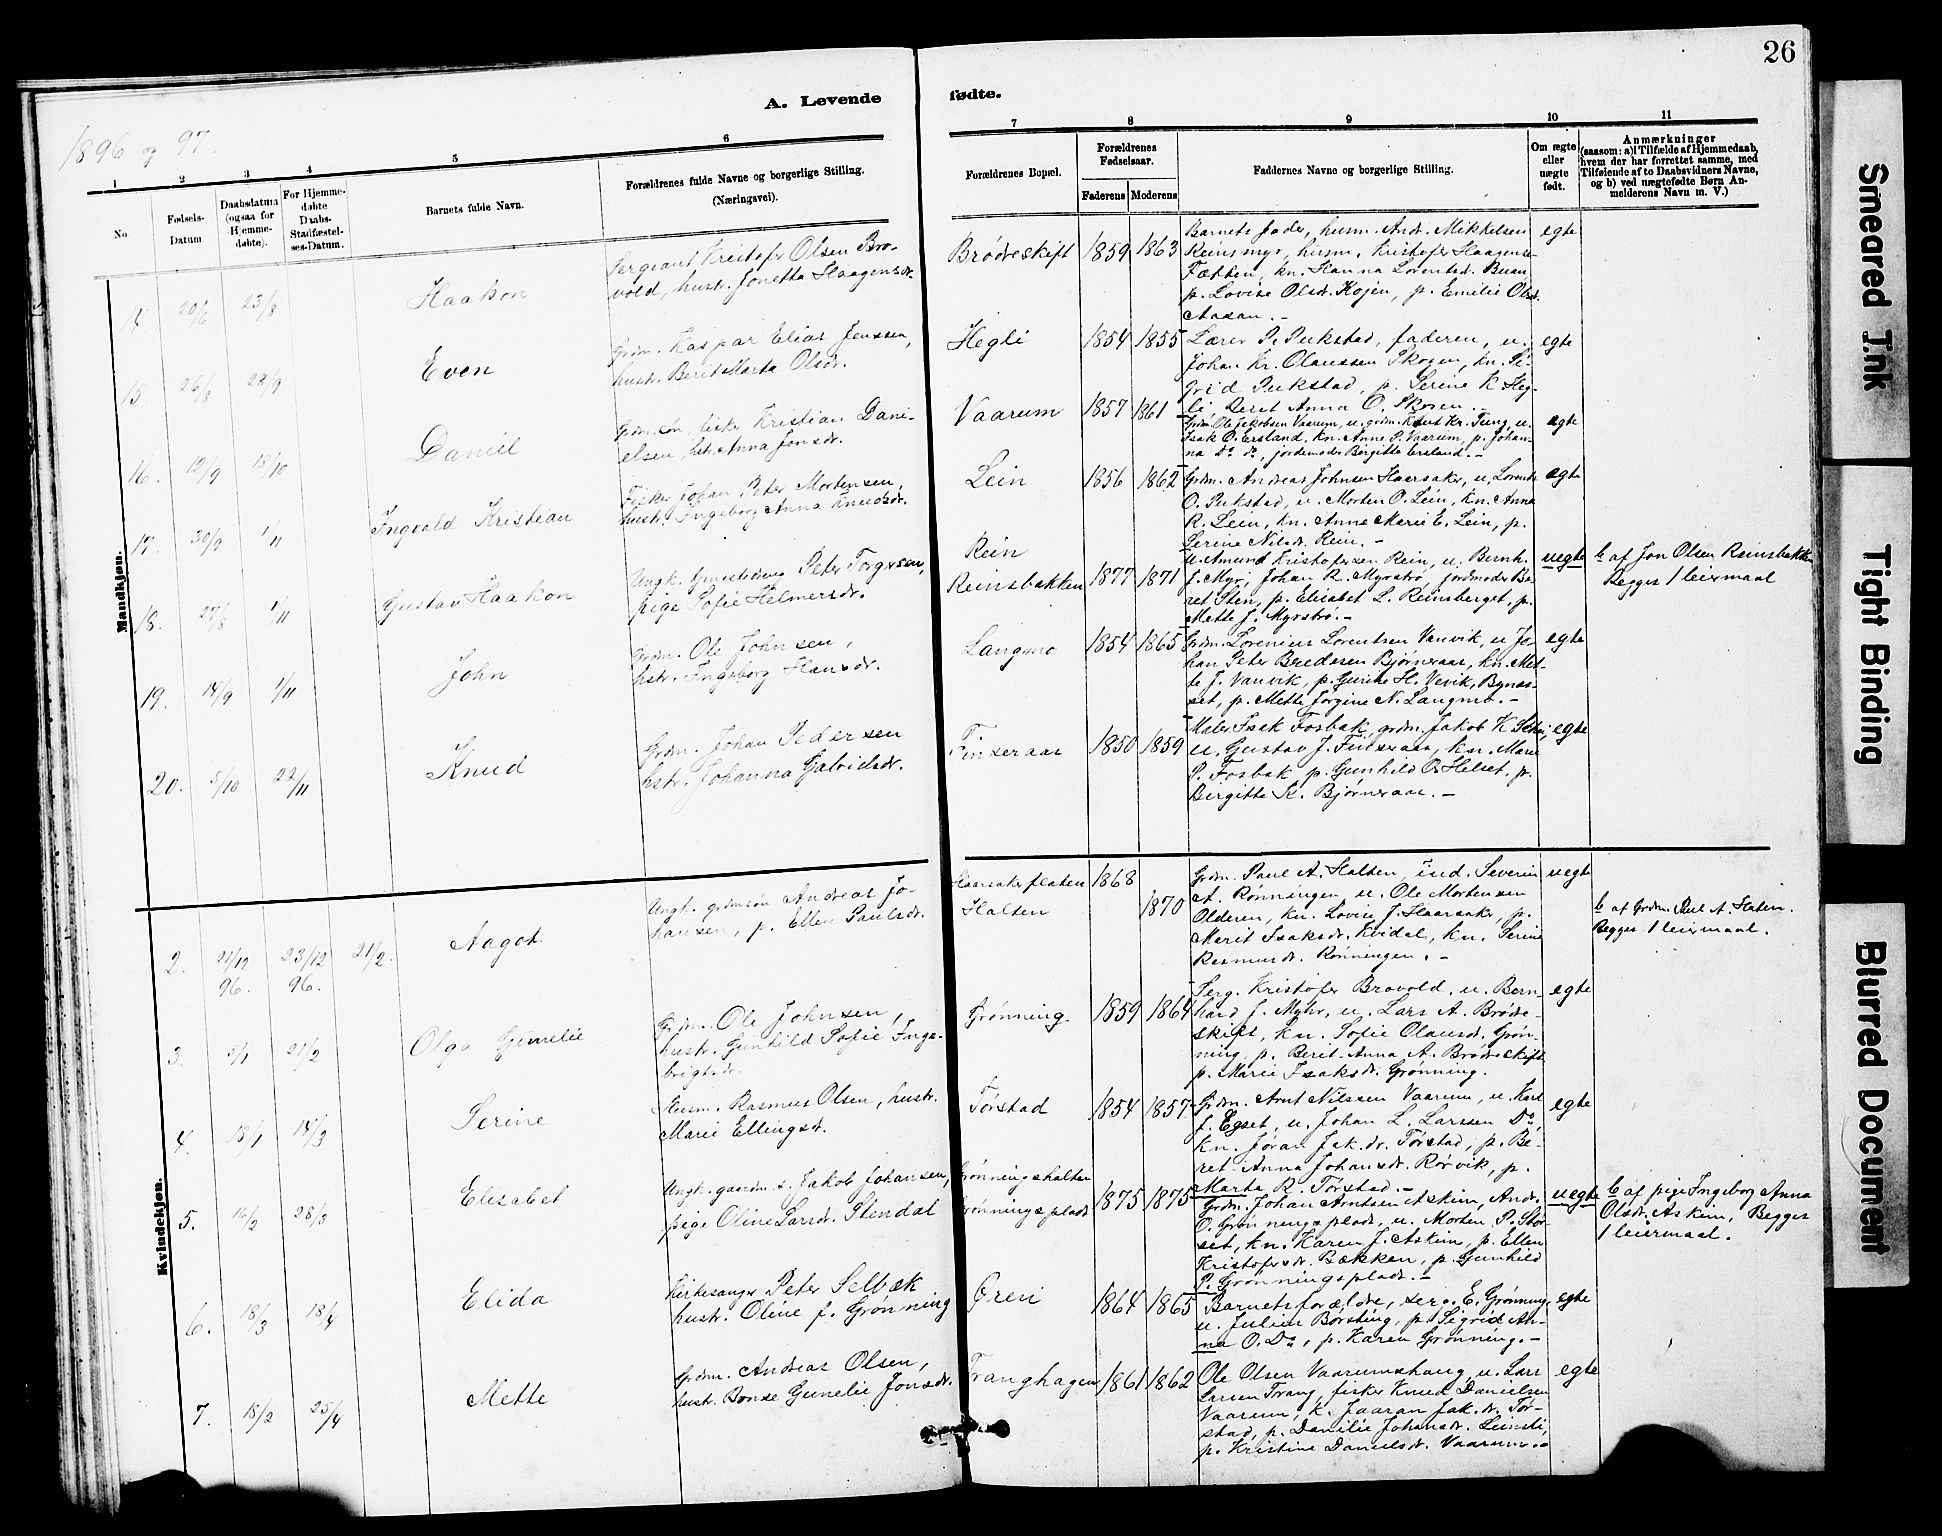 26
A. Levende fødte.
1896 og 97.
1 2 3 4 5 6 7 8 9 10 11
No
Fødsels-
Datum
Daabsdatum
(ogsaa for
Hjemme-
døbte).
For Hjemme-
døbte
Daabs-
Stadfæstel-
ses-Datum.
Barnets fulde Navn.
Forældrenes fulde Navne og borgerlige Stilling.
(Næringsvei).
Forældrenes Bopæl.
Forældrenes
Fødselsaar.
Faderens Moderens
Faddernes Navne og borgerlige Stilling.
Om ægte
eller
uægte
født.
Anmærkninger
(saasom: a) Tilfælde af Hjemmedaab,
hvem der har forrettet samme, med
Tilføiende af to Daabsvidners Navne,
og b) ved uægtefødte Børn An-
melderens Navn m. V.)
Mandkjøn.
14. 20/6 23/8 Haakon
Sergeant Kristofer Olsen Bro-
vold, hustr. Jonetta Haagensdr.
Brødreskift 1859 1863
Barnets fader, husm. Andr. Mikkelsen
Reinsmyr, husm. Kristofer Haagens.
Fætten, kn. Hanna Lorentsdr. Buan,
p. Lovise Olsdr. Kojen, p. Emilie Olsdr.
Aasan. -
egte
15. 26/8 28/9 Even
Grdm. Kaspar Elias Jenssen,
hustr. Berit Marta Olsdr.
Hegli 1854 1855
Lærer P. Pukstad, faderen, u.
Johan Kr. Olaussen Skogen, kn. Si-
grid Pukstad, p. Serine K. Heg-
li, Beret Anna O. Skogen. -
egte
16. 12/9 18/10 Daniel
Grdm.søn, fisker Kristian Dani-
elsen, hstr. Anna Jonsdr.
Vaarum 1857 1861
Grdm. Ole Jakobsen Vaarum, u. grdm. Knut Kr. Tung, u.
Isak O. Ersland, kn. Anne P. Vaarum, p. Johan-
na Do do, jordemoder Birgitte Ersland. -
egte
17. 30/9 1/11 Ingvald Kristian
Fisker Johan Peter Mortensen,
hustr. Ingeborg Anna Knudsdr.
Lein 1856 1862
Grdm. Andreas Johnsen Haarsaker, u. Lorents
O. Pukstad, u. Morten O. Lein, kn. Anna
R. Lein, kn. Anne Marie E. Lein, p.
Serine Nilsdr. Rein. -
egte
18. 27/8 1/11 Gustav Haakon
Ungk. tjenestedreng Peter Torgersen,
pige Sofie Helmersdr.
Rein
Reinsbakken 1877 1871
u. Amund Kristofersen Rein, u. Bernh.
J. Myr, Johan R. Myrstrø, jordmoder Be-
ret Sten, p. Elisabet L. Reinsberget, p.
Mette J. Myrstrø. -
uegte
b af Jon Olsen Reinsbakken
Begges 1 leiermaal
19. 14/9 1/11 John
Grdm. Ole Johnsen,
hstr. Ingeborg Hansdr.
Langmo 1854 1865
Grdm. Lorenius Lorentsen Vanvik, u. Jo-
han Peter Bredesen Bjørneraas, kn. Met-
te J. Vanvik, p. Gurine H. Vevik, Bynes-
set, p. Mette Jørgine N. Langmo. -
egte
20. 5/10 22/11 Knud
Grdm. Johan Pedersen
hstr. Johanna Gabrielsdr.
Finseraas 1850 1859
Maler Isak Fosbak, grdm. Jakob K.
u. Gustav J. Finseraas, kn. Marie
P. Fosbak, p. Gunhild O. Helset, p.
Birgitte K. Bjørneraas. -
egte
Kvindekjøn.
2. 21/12 96. 23/12 96. 21/2. Aagot
Ungk. grdmsøn Andreas Jo-
hansen, p. Ellen Paulsdr.
Haarsakerflaten 1868
Halten 1870
Grdm. Paul A. Halten, ind. Severin
A. Rønningen, u. Ole Mortensen
Olderen, kn. Lovise J. Haarsaker, p.
Merit Isaksdr. Kvidal, kn. Serine
Rasmusdr. Rønningen. -
uegte
b af Grdm. Paul A. Halten.
Begges 1 leiermaal.
3. 5/1 21/2 Olga Gunelie
Grdm. Ole Johnsen,
hustr. Gunhild Sofie Inge-
brigtsdr.
Grønning 1859 1864
Serg. Kristofer Brovold, u. Bern-
hard J. Myhr, u. Lars A. Brødre-
skift, kn. Sofie Olausdr. Grøn-
ning, p. Berit Anna A. Brødreskift
p. Marie Isaksdr. Grønning.
egte
4. 18/1 14/3 Serine
Husm. Rasmus Olsen, hustr.
Marie Ellingsdr.
Tørstad 1854 1857
Grdm. Arnt Nilssen Vaarum, u. Karl
J. Egset, u. Johan L. Larssen Do
kn. Jøran Jak.dr. Tørstad, p. Be-
ret Anna Johansdr. Rørvik, p.
Marta R. Tørstad. -
egte
5. 16/2 28/3 Elisabet
Ungk. gaardm. s. Jakob Johansen,
pige Oline Larsdr. Stendal
Grønningshalten
Grønningsplads 1875 1875
Grdm. Johan Arntsen Askim, Andr.
O. Grønningsplads, u. Morten P. Stor-
set, kn. Karen J. Askim, p. Ellen
Kristofersdr. Bækken, p. Gunhild
P. Grønningsplads. -
uegte
b af pige Ingeborg Anna
Olsdr. Askim, Begges
1 leiermaal.
6. 18/3 18/4 Elida
Kirkesanger Peter Selbæk
hustr. Oline f. Grønning
Øren 1864 1865
Barnets forældre, serg. E. Grønning,
u. Julius Børsting, p. Sigrid An-
na O. Do, p. Karen Grønning. -
egte
7. 18/2 25/4 Mette
Grdm. Andreas Olsen,
hustr. Bonse Gunelie Jonsdr.
Tranghagen 1861 1862
Ole Olsen Vaarumshaug, u. Lars
Larsen Trang, fisker Knud Danielsen
Vaarum, k. Jaaran Jak.dr. Tør-
stad, p. Danilie Johansdr. Leinsli,
p. Kristine Danielsdr. Vaarum. -
egte
Smeared Ink
Tight Binding
Blurred Document